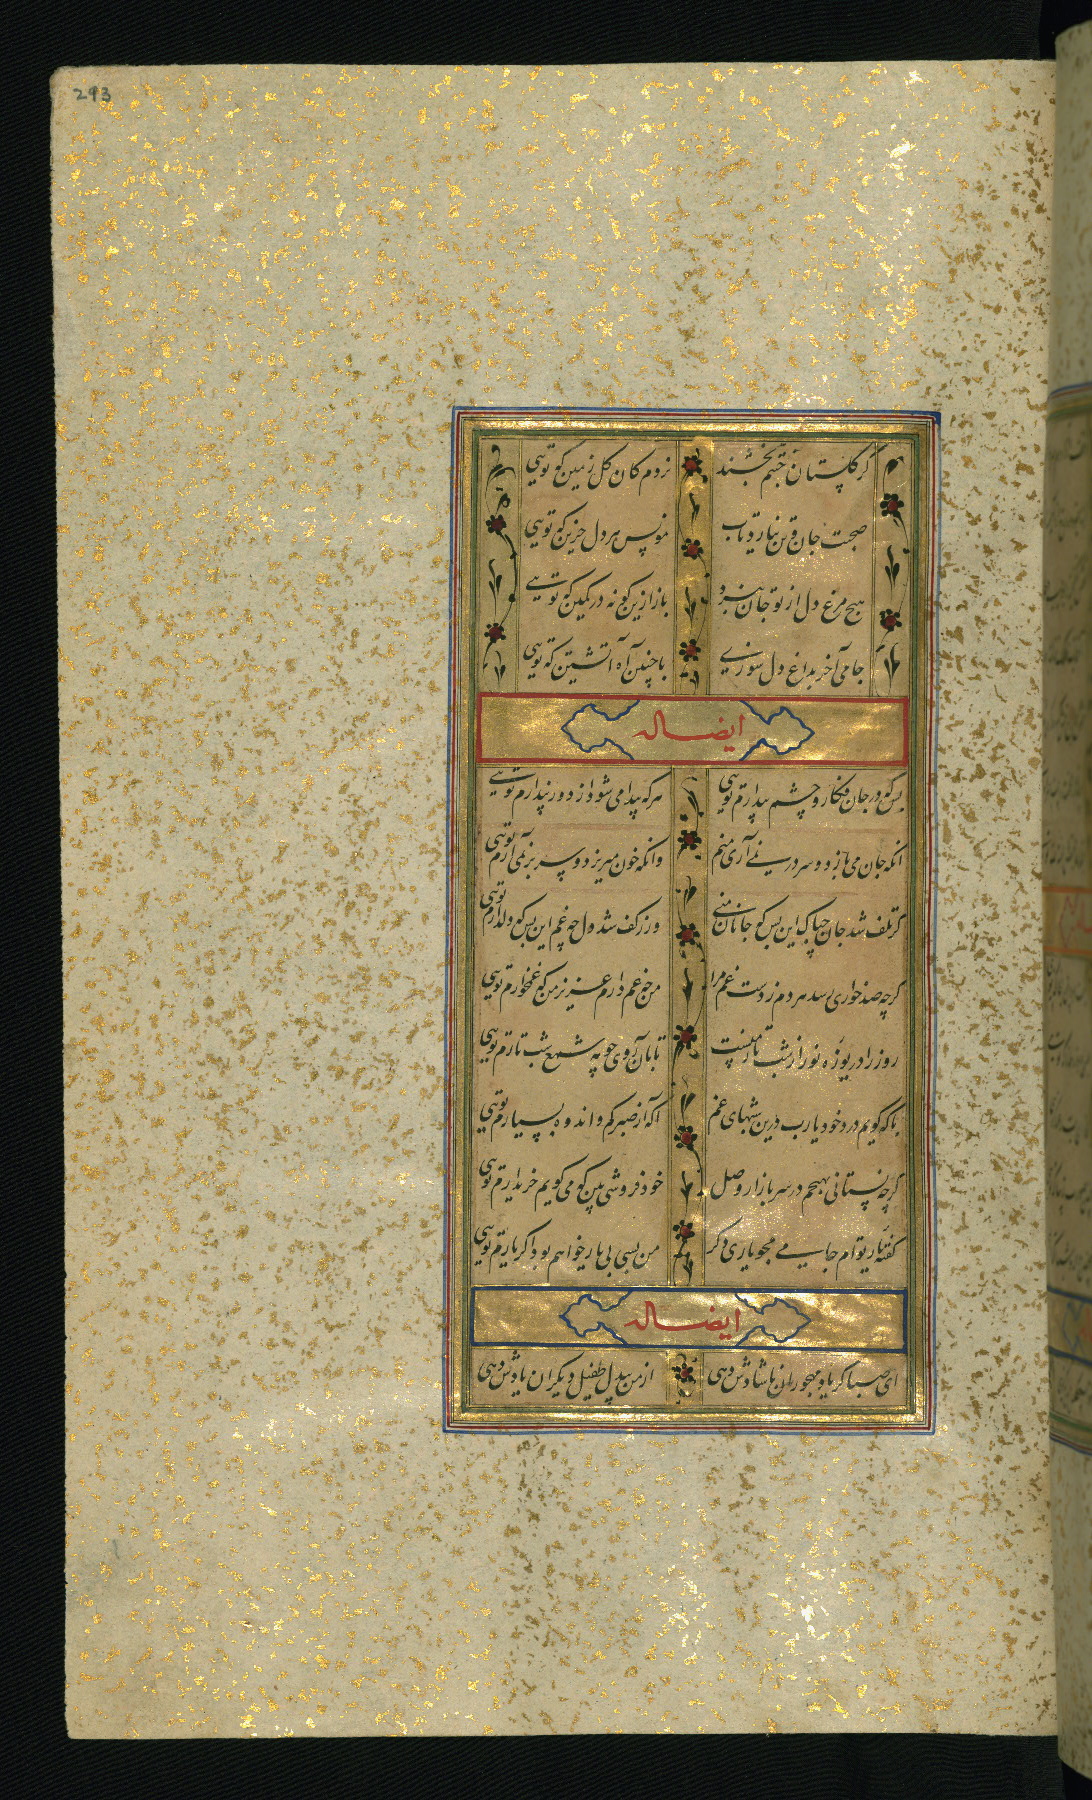 293
گر گلستان جنتم بخشند نروم کان گل زمین که تویی
صحبت جان و تن نیارد تاب مونس هر دل حزین که تویی
هیچ مرغ دل از تو جان نبرد باز ازین کونه در کمین که تویی
جامی آخر بداغ دل سوزی با چنین آه آتشین که تویی
ایضا له
بس که در جان فکار و چشم بیدارم تویی هر که پیدا می شود از دور پندارم تویی
آنکه جان می بازد و سر در نمی آرد منم وانکه خون میریزد و سر بر نمی آرد تویی
گر تلف شد جان چه باک این بس که جانان منی ور ز کف شد دل چه غم این بس که دلدارم تویی
گرچه صد خواری رسد هر دم ز دست غم مرا من چه غم دارم عزیز من که غمخوارم تویی
روز را دریوزه نور از شب تار منست تا بآن روی چو مه شمع شب تارم تویی
با که گویم درد خود یارب درین شبهای غم آگه از صبر کم و اندوه بسیارم تویی
گرچه نستانی بهیچم در سر بازار وصل خود فروشی بین که می گویم خریدارم تویی
گفته یار توام جامی مجو یاری دکر من بسی بی یار خواهم بود اگر یارم تویی
ایضا له
ای صبا گر یاد مهجوران ناشادش دهی از من بیدل طفیل دیگران یادش دهی